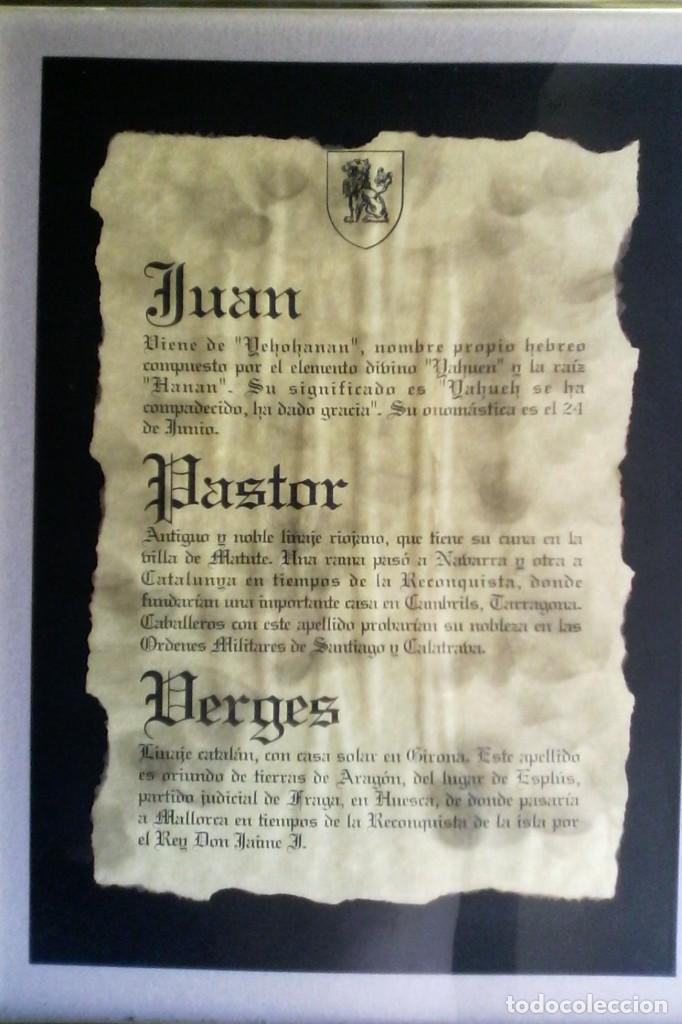 Juan
Viene de "Yehohanan", nombre propio hebreo
compuesto por el elemento divino "Yahueh" y la raíz
"Hanan". Su significado es "Yahueh se ha
compadecido, ha dado gracia". Su onomástica es el 24
de Junio.
Pastor
Antiguo y noble linaje riojano, que tiene su cuna en la
villa de Matute. Una rama pasó a Navarra y otra a
Catalunya en tiempos de la Reconquista, donde
fundarían una importante casa en Cambrils, Tarragona.
Caballeros con este apellido probarían su nobleza en las
Ordenes Militares de Santiago y Calatrava.
Verges
Linaje catalán, con casa solar en Girona. Este apellido
es oriundo de tierras de Aragón, del lugar de Esplús,
partido judicial de Fraga, en Huesca, de donde pasaría
a Mallorca en tiempos de la Reconquista de la isla por
el Rey Don Jaime I.
todocoleccion